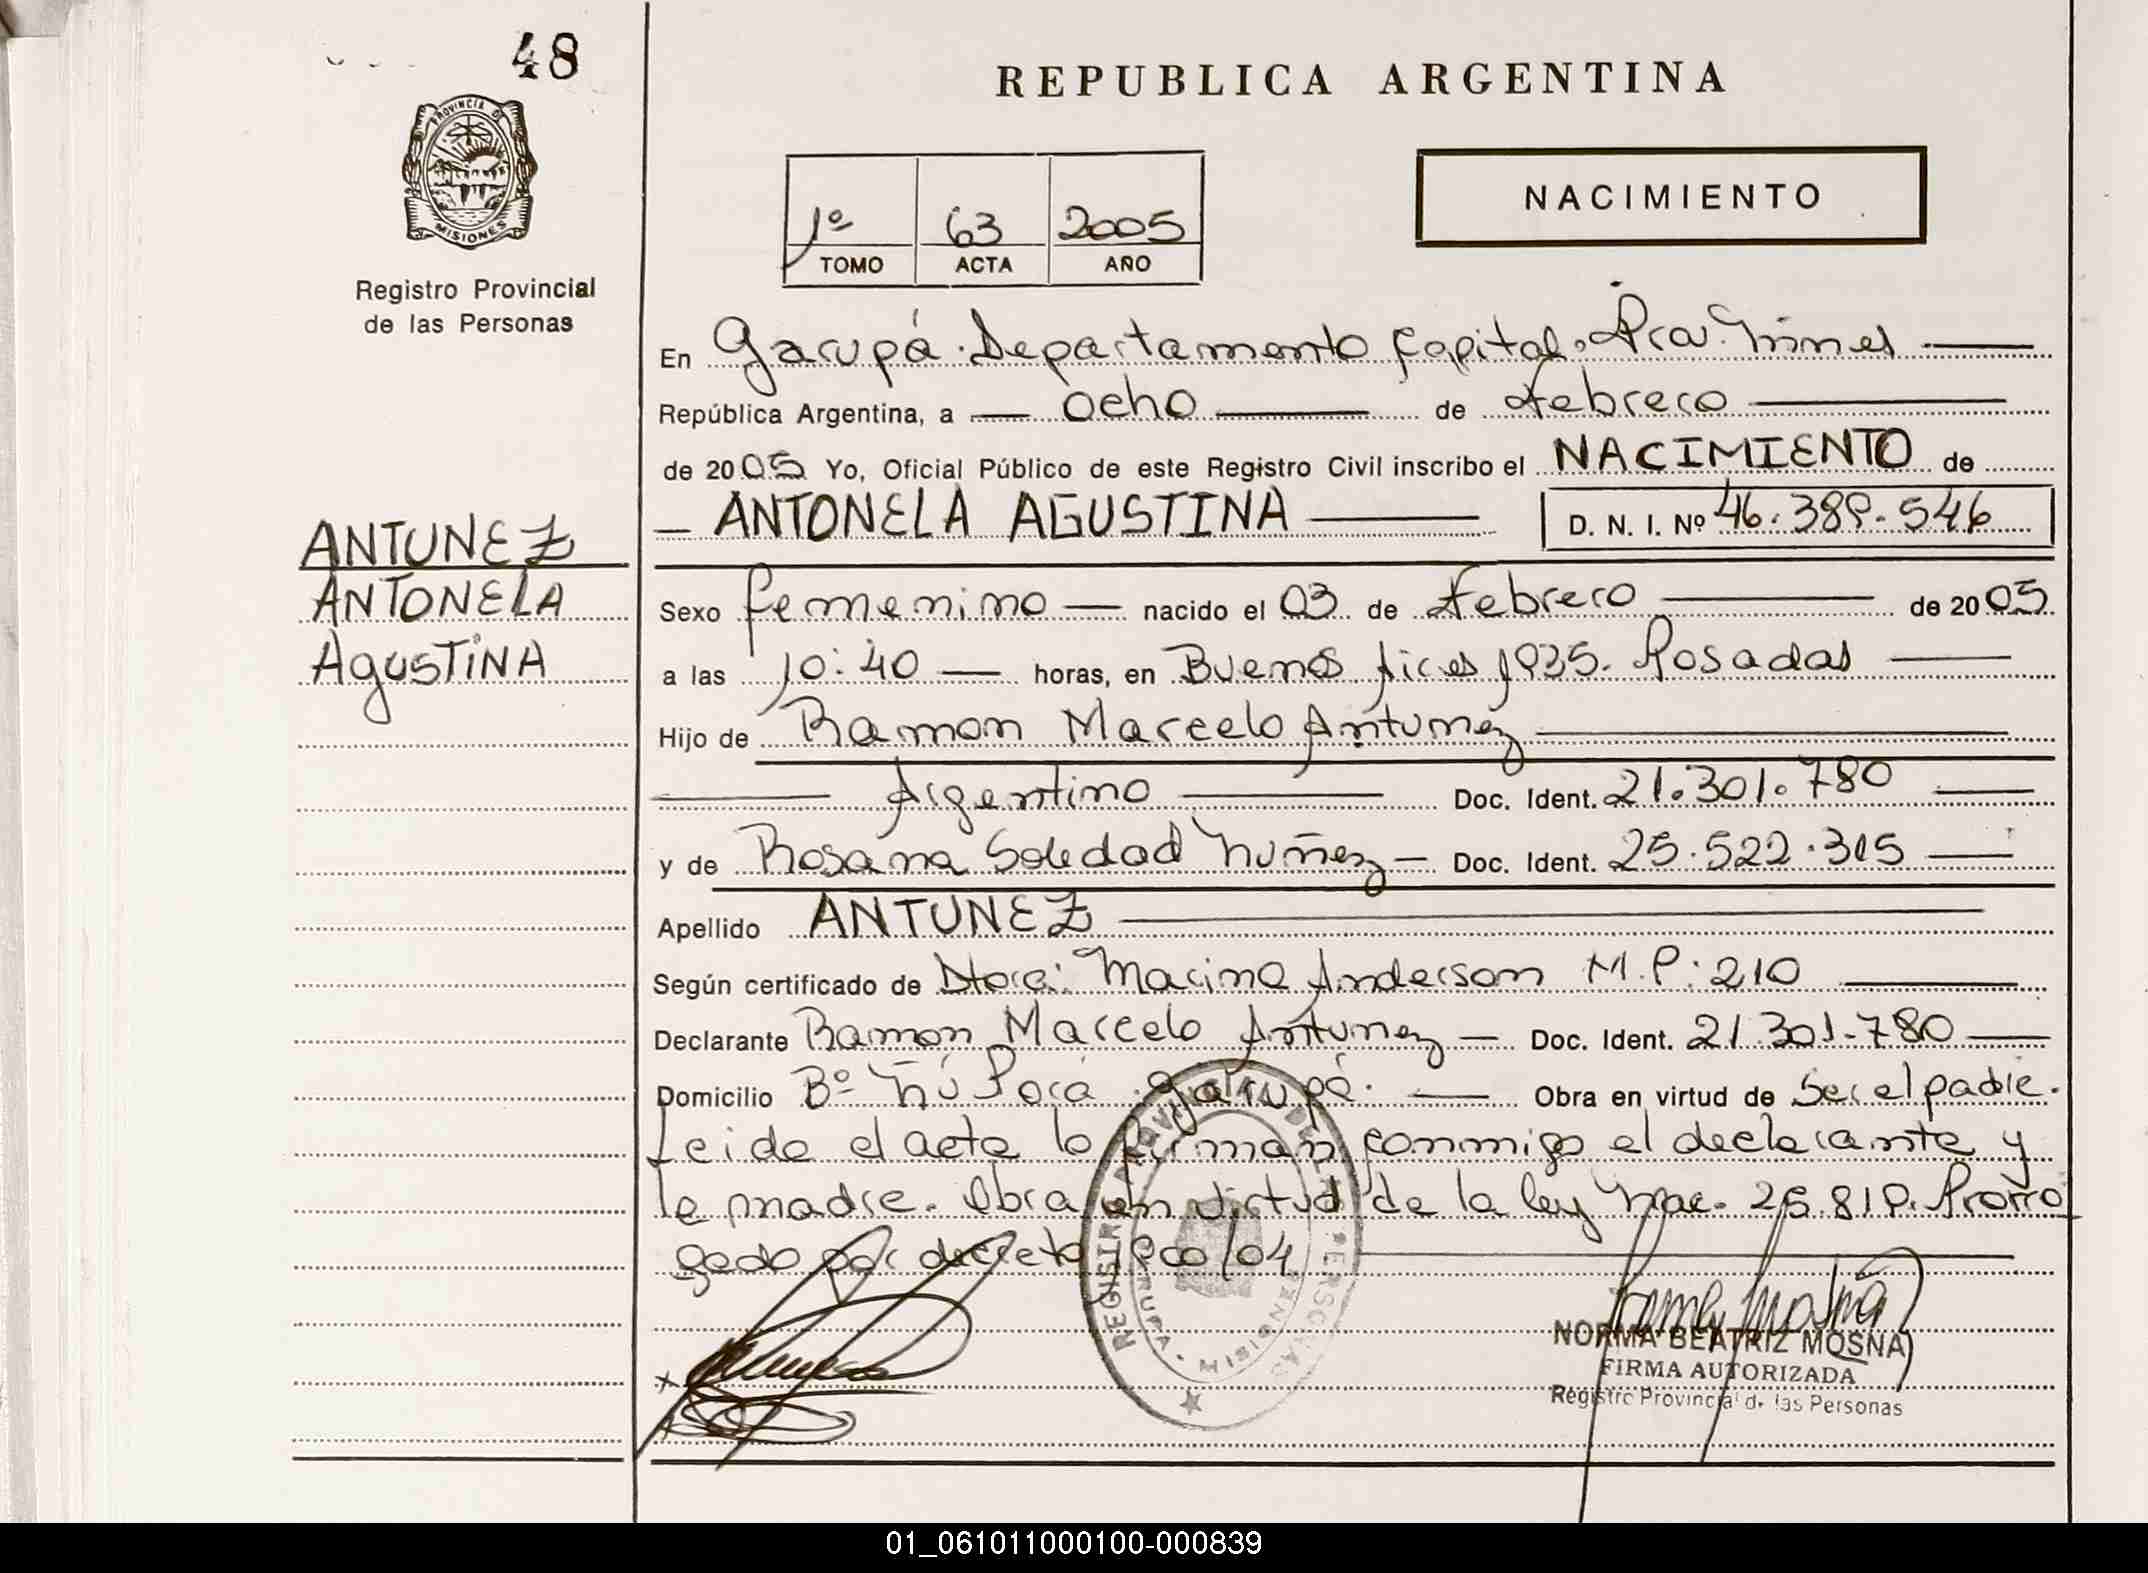 48
REPUBLICA ARGENTINA
PROVINCIA DE
MISIONES
Registro Provincial
de las Personas
1º 63 2005
TOMO ACTA AÑO
NACIMIENTO
En Garupá. Departamento Capital. Pcia. Mnes
República Argentina, a ocho de Febrero
de 2005 Yo, Oficial Público de este Registro Civil inscribo el NACIMIENTO de
ANTONELA AGUSTINA D. N. I. Nº 46.389.546
ANTUNEZ
ANTONELA
AGUSTINA
Sexo femenino nacido el 03 de Febrero de 2005
a las 10:40 horas, en Buenos Aires 1935. Posadas
Hijo de Ramon Marcelo Antunez
Argentino Doc. Ident. 21.301.780
y de Rosana Soledad Nuñez Doc. Ident. 25.522.315
Apellido ANTUNEZ
Según certificado de Dtora: Marina Anderson M.P: 210
Declarante Ramon Marcelo Antunez Doc. Ident. 21.301.780
Domicilio Bº Ñú Porá Garupá. Obra en virtud de ser el padre.
Leida el acta lo firman conmigo el declarante y
la madre. Obra en virtud de la ley Nac. 25.819. Prorro
gado por decreto /04
NORMA BEATRIZ MOSNA
FIRMA AUTORIZADA
Registro Provincial de las Personas
01_061011000100-000839